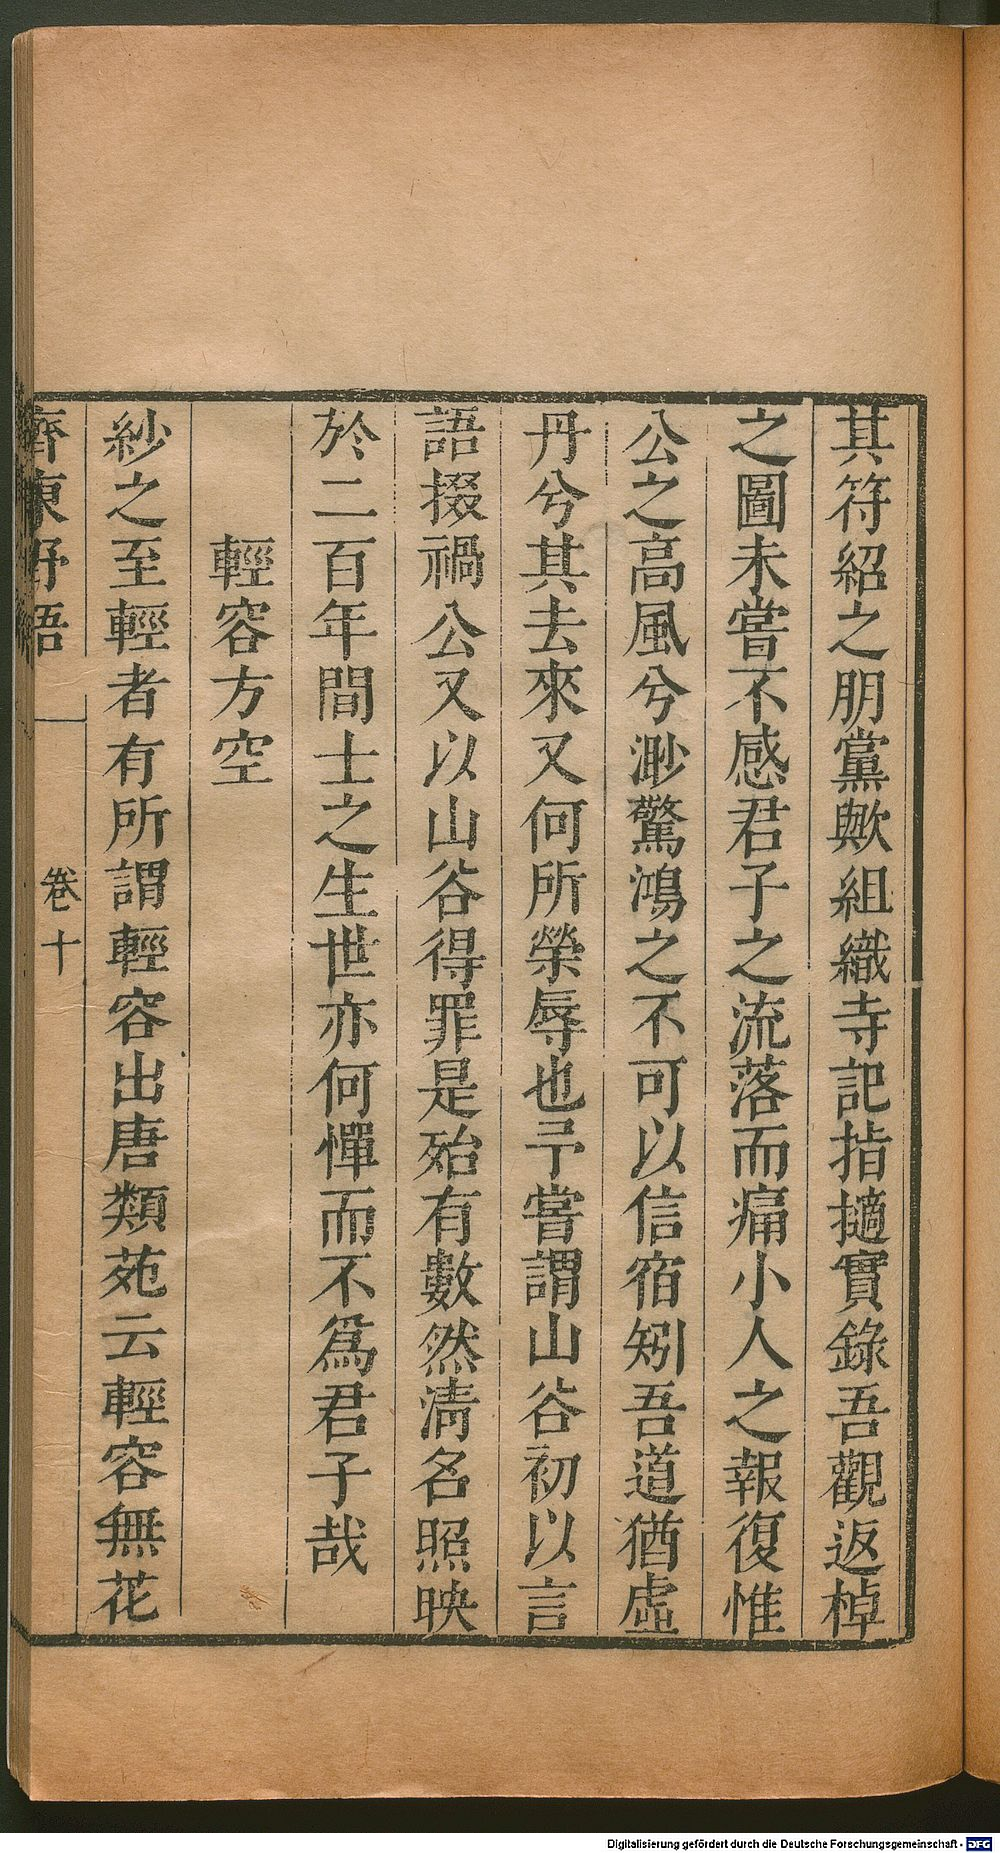 其符紹之朋黨歟組織寺記指擿實錄吾觀返棹
之圖未嘗不感君子之流落而痛小人之報復惟
公之高風兮渺驚鴻之不可以信宿矧吾道猶虛
丹兮其去來又何所榮辱也予嘗謂山谷初以言
語掇禍公又以山谷得罪是殆有數然清名照映
於二百年間士之生世亦何憚而不爲君子哉
輕容方空
紗之至輕者有所謂輕容出唐類苑云輕容無花
齊東野語
卷十
Digitalisierung gefördert durch die Deutsche Forschungsgemeinschaft - DFG